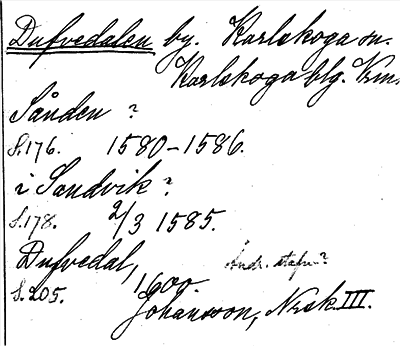 Dufvedalen by. Karlskoga sn.
Karlskoga blg. Vrm.
Sånden ?
S.176. 1580-1586.
i Sandvik ?
S.178. 2/3 1585.
Dufvedal, Andr. stafn?
S.205. 1600.
Johansson, Nrsk. III.